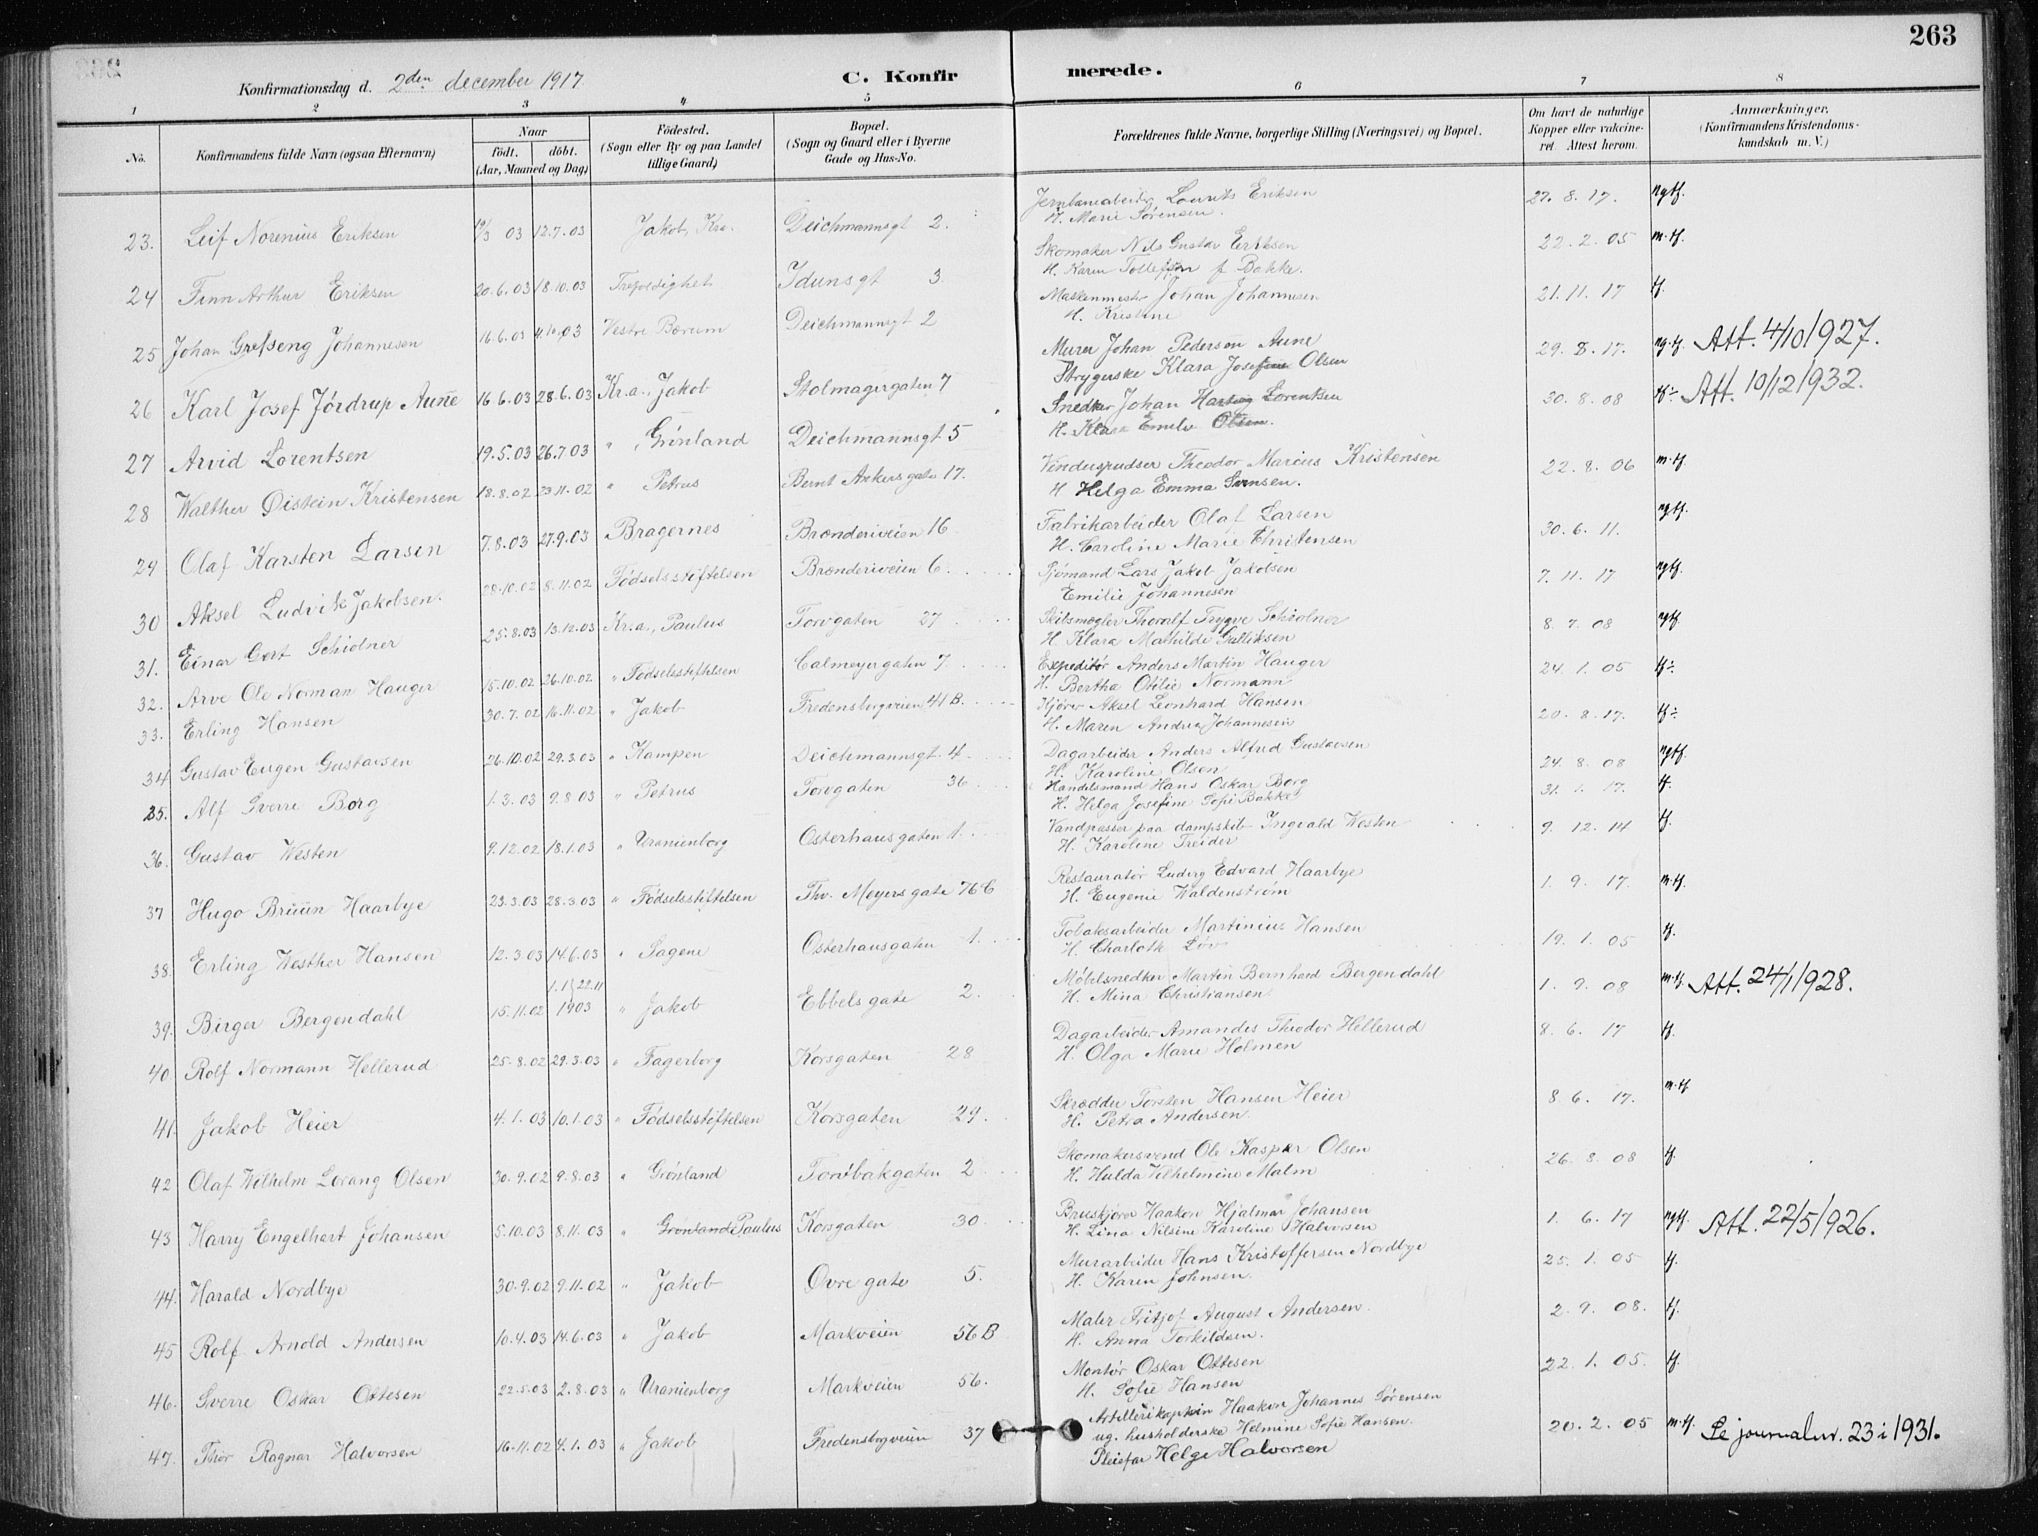 263
Konfirmationsdag d. 2den december 1917
C. Konfirmerede.
1 2 3 4 5 6 7 8
No. Konfirmandens fulde Navn (ogsaa Efternavn) Naar født. døbt. (Aar, Maaned og Dag) Fødested. (Sogn eller By og paa Landet tillige Gaard) Bopæl. (Sogn og Gaard eller i Byerne Gade og Hus-No. Forældrenes fulde Navne, borgerlige Stilling (Næringsvei) og Bopæl. Om havt de naturlige Kopper eller vakcineret Attest herom. Anmærkninger. (Konfirmandens Kristendomskundskab m. V.)
23. Leif Norenius Eriksen 19/3 03 12.7.03 Jakob, Kra. Deichmannsgt 2. Jernbanearbeider Lourits Eriksen 27. 8. 17. ngtf.
H. Marie Sørensen.
24 Finn Arthur Eriksen 20.6.03 18.10.03 Trefoldighet Idunsgt 3. Skomaker Nils Gustav Eriksen 22. 2. 05 m.tf.
H. Karen Tollefsen f. Bakke.
25 Johan Grefseng Johannesen 16.6.03 4.10.03 Vestre Bærum Deichmannsgt 2 Maskinmester Johan Johannesen 21. 11. 17 tf.
H. Kristine
26 Karl Josef Jørdrup Aune 16 6.03 28.6.03 Kr.a., Jakob Stolmagergaten 7 Murer Johan Pederson Aune 29. 8. 17. ng.tf. Att. 4/10/927.
Strygerske Klara Josefine Olsen
27 Arvid Lorentsen 19.5.03 26.7.03 " Grønland Deichmannsgt 5 Snedker Johan Lorentsen 30. 8. 08 tf÷ Att. 10/12/932.
H. Klara Emilie Olsen.
28 Walther Øistein Kristensen 18.8.02 23.11.02 " Petrus Bernt Ankers gate 17. Vinduspudser Theodor Marius Kristensen 22. 8. 06 m.tf.
H Helga Emma Svensen.
29 Olaf Karsten Larsen 7.8.03 27.9.03 Bragernes Brænderiveien 16 Fabrikarbeider Olaf Larsen 30. 6. 11. ngtf.
H. Caroline Marie Christensen
30 Aksel Ludvik Jakobsen. 28.10.02 8.11.02 Fødselsstiftelsen Brænderiveien 6. Sjømand Lars Jakob Jakobsen 7. 11. 17 ngtf.
Emilie Johannesen
31. Einar Gert Schiolner 25.8.03 13.12.03 Kr.a., Paulus Torvgaten 27 Skibsmægler Thoralf Trygve Schiolner 8. 7. 08 ngtf.
H Klara Mathilde Gulliksen
32. Arve Ole Norman Hauger 15.10.02 26.10.02 " Fødselsstiftelsen Calmeyergaten 7. Expeditør Anders Martin Hauger 24. 1. 05 tf÷
H. Bertha Otilie Normann
33. Erling Hansen 30.7.02 16.11.02 " Jakob Fredensborgveien 41B. Kjører Aksel Leonhard Hansen 20. 8. 17. tf÷
H. Maren Andrea Johannesen
34 Gustav Eugen Gustavsen 26.10.02 29.3.03 " Kampen Deichmannsgt. 4. Dagarbeider Anders Alfred Gustavsen 24. 8. 08 ngtf.
H. Karoline Olsen
35. Alf Sverre Borg 1.3.03 9.8.03 " Petrus Torvgaten 36 Handelsmand Hans Oskar Borg 31. 1. 17. tf.
H. Helga Josefine Sofie Bakke
36. Gustav Westen 9.12.02 18.1.03 " Uranienborg Osterhausgaten 1. Vandpasser paa dampskib Ingvald Westen 9. 12. 14 tf.
H. Karoline Treider
37 Hugo Bruun Haarbye 23.3.03 28.3.03 " Fødselsstiftelsen Thv. Meyers gate 76 C Restauratør Ludvig Edvard Haarbye 1. 9. 17. m.tf.
H. Eugenie Waldenstrøm
38. Erling Westher Hansen 12.3.03 14.6.03 " Sagene Osterhausgaten 1. Tobaksarbeider Martinius Hansen 19. 1. 05 tf.
H. Charlotte Løv
39. Birger Bergendahl 15.11.02 1903 " Jakob Ebbels gate 2. Møbelsnedker Martin Bernhard Bergendahl 1. 9. 08 m.tf. Att. 24/1 1928.
H. Mina Christiansen
40 Rolf Normann Hellerud 25.8.02 29.3.03 " Fagerborg Korsgaten 28 Dagarbeider Amandes Theodor Hellerud 8. 6. 17 tf.
H. Olga Marie Holmen
41. Jakob Heier 4.1.03 10.1.03 " Fødselsstiftelsen Korsgaten 29. Skrædder Torsten Hansen Heier 8 6. 17. m.tf.
H. Petra Andersen
42 Olaf Wilhelm Lorang Olsen 30.9.02 9.8.03 " Grønland Torvbakgaten 2 Skomakersvend Ole Kasper Olsen 26. 8. 08 tf.
H. Hulda Vilhelmine Malm
43 Harry Engelhart Johansen 5.10.03 8.11.03 " Paulus Korsgaten 30. Bruskjører Haakon Hjalmar Johansen 1. 6. 17 ngtf. Att. 22/5/926.
H. Lina Nilsine Karoline Halvorsen
44. Harald Nordbye 30.9.02 9.11.02 " Jakob Øvre gate 5. Murarbeider Hans Kristoffersen Nordbye 25. 1. 05 tf.
H. Karen Johnsen
45 Rolf Arnold Andersen 10.4.03 14.6.03 " Jakob Markveien 56 B Maler Fritjof August Andersen 2. 9. 08. tf.
H. Anna Torkildsen.
46. Sverre Oskar Ottesen 22.5.03 2.8.03 " Uranienborg Markveien 56. Montør Oskar Ottesen 22. 1. 05. tf.
H. Sofie Hansen
47. Thor Ragnar Halvorsen 16.11.02 4.1.03 " Jakob Fredensborgveien 37 Artillerikaptein Haakon Johannes Sørensen 20. 2. 05 m.tf. Se journalnr. 23 i 1931.
ug. husholderske Helmine Sofie Hansen.
Pleiefar Helge Halvorsen